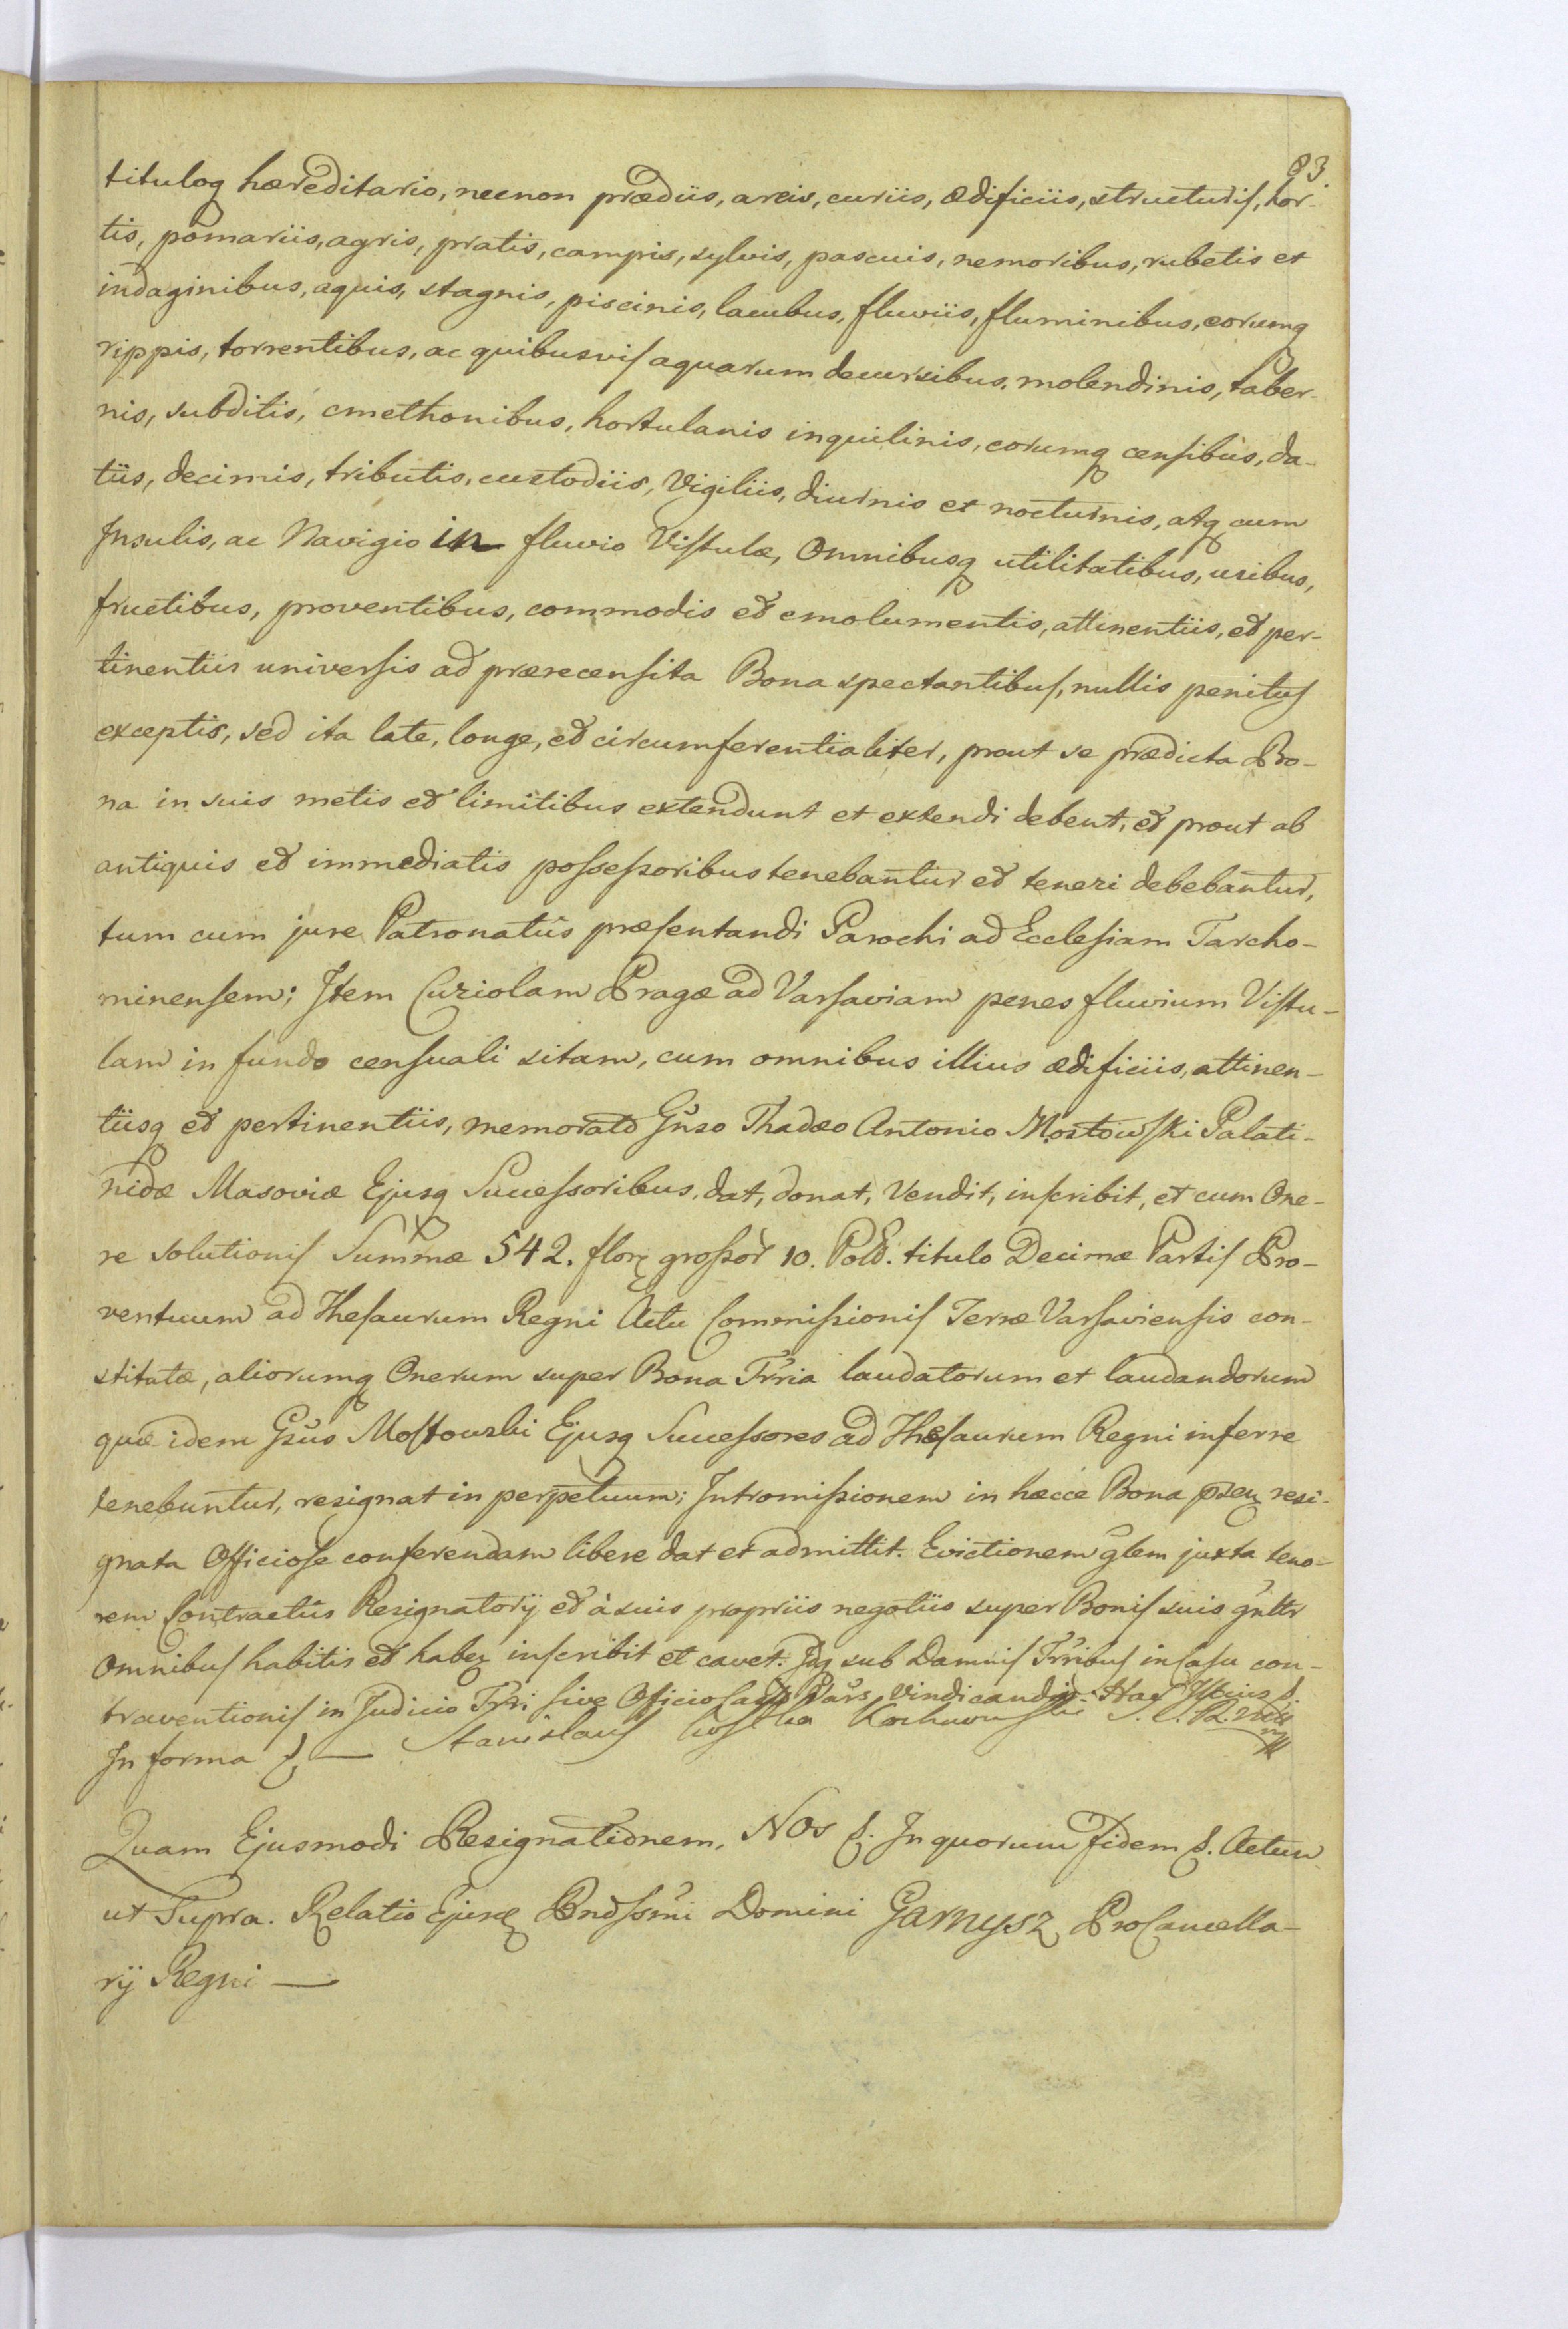 83.
tituloq hæreditario, necnon prædiis, areis, curiis, ædificiis, structuris, hor-
tis, pomariis, agris, pratis, campis, sylvis, pascuis, nemoribus, rubetis et
indaginibus, aquis, stagnis, piscinis, lacubus, fluviis, fluminibus, eorumq
rippis, torrentibus, ac quibusvis aquarum decursibus, molendinis, taber-
nis, subditis, cmethonibus, hortulanis inquilinis, eorumq censibus, da-
tiis, decimis, tributis, custodiis, Vigiliis, diurnis et nocturnis, atq cum
Insulis, ac Navigio in fluvio Vistulæ, Omnibusq utilitatibus, usibus,
fructibus, proventibus, commodis et emolumentis, attinentiis, et per-
tinentiis universis ad prærecensita Bona spectantibus, nullis penitus
exceptis, sed ita late, longe, et circumferentialiter, prout se prædicta Bo-
na in suis metis et limitibus extendunt et extendi debent, et prout ab
antiquis et immediatis possessoribus tenebantur et teneri debebantur,
tum cum jure Patronatûs præsentandi Parochi ad Ecclesiam Tarcho-
minensem; Item Curiolam Pragæ ad Varsaviam penes fluvium Vistu-
lam in fundo censuali sitam, cum omnibus illius ædificiis, attinen-
tiisq et pertinentiis, memorato Gñso Thadæo Antonio Mostowski Palati-
nidæ Masoviæ Ejusq Successoribus, dat, donat, Vendit, inscribit, et cum One-
re solutionis Summæ 542. flor grossor 10. Pold. titulo Decimæ Partis Pro-
ventuum ad Thesaurum Regni Actu Commissionis Terræ Varsaviensis con-
stitutæ, aliorumq Onerum super Bona Trria laudatorum et laudandorum
quæ idem Gsus Mostowski Ejusq Successores ad Thesaurum Regni inferre
tenebuntur, resignat in perpetuum; Intromissionem in hæcce Bona præ resi-
gnata Officiose conferendam libere dat et admittit. Evictionem glem juxta teno-
rem Contractûs Resignatorij et à suis propriis negotiis super Bonis suis gnltr
Omnibus habitis et haben inscribit et cavet. Idq sub Damnis Trribus in Casu con-
traventionis in Judicio Trri sive Officiosa Pars vindicandis. Hac
In forma &c — Stanislaus Kostka
Quam Ejusmodi Resignationem, Nos &. In quorum fidem &. Actum
ut Supra. Relatio Ejusd Rndssmi Domini Garnysz ProCancella-
rij Regni —